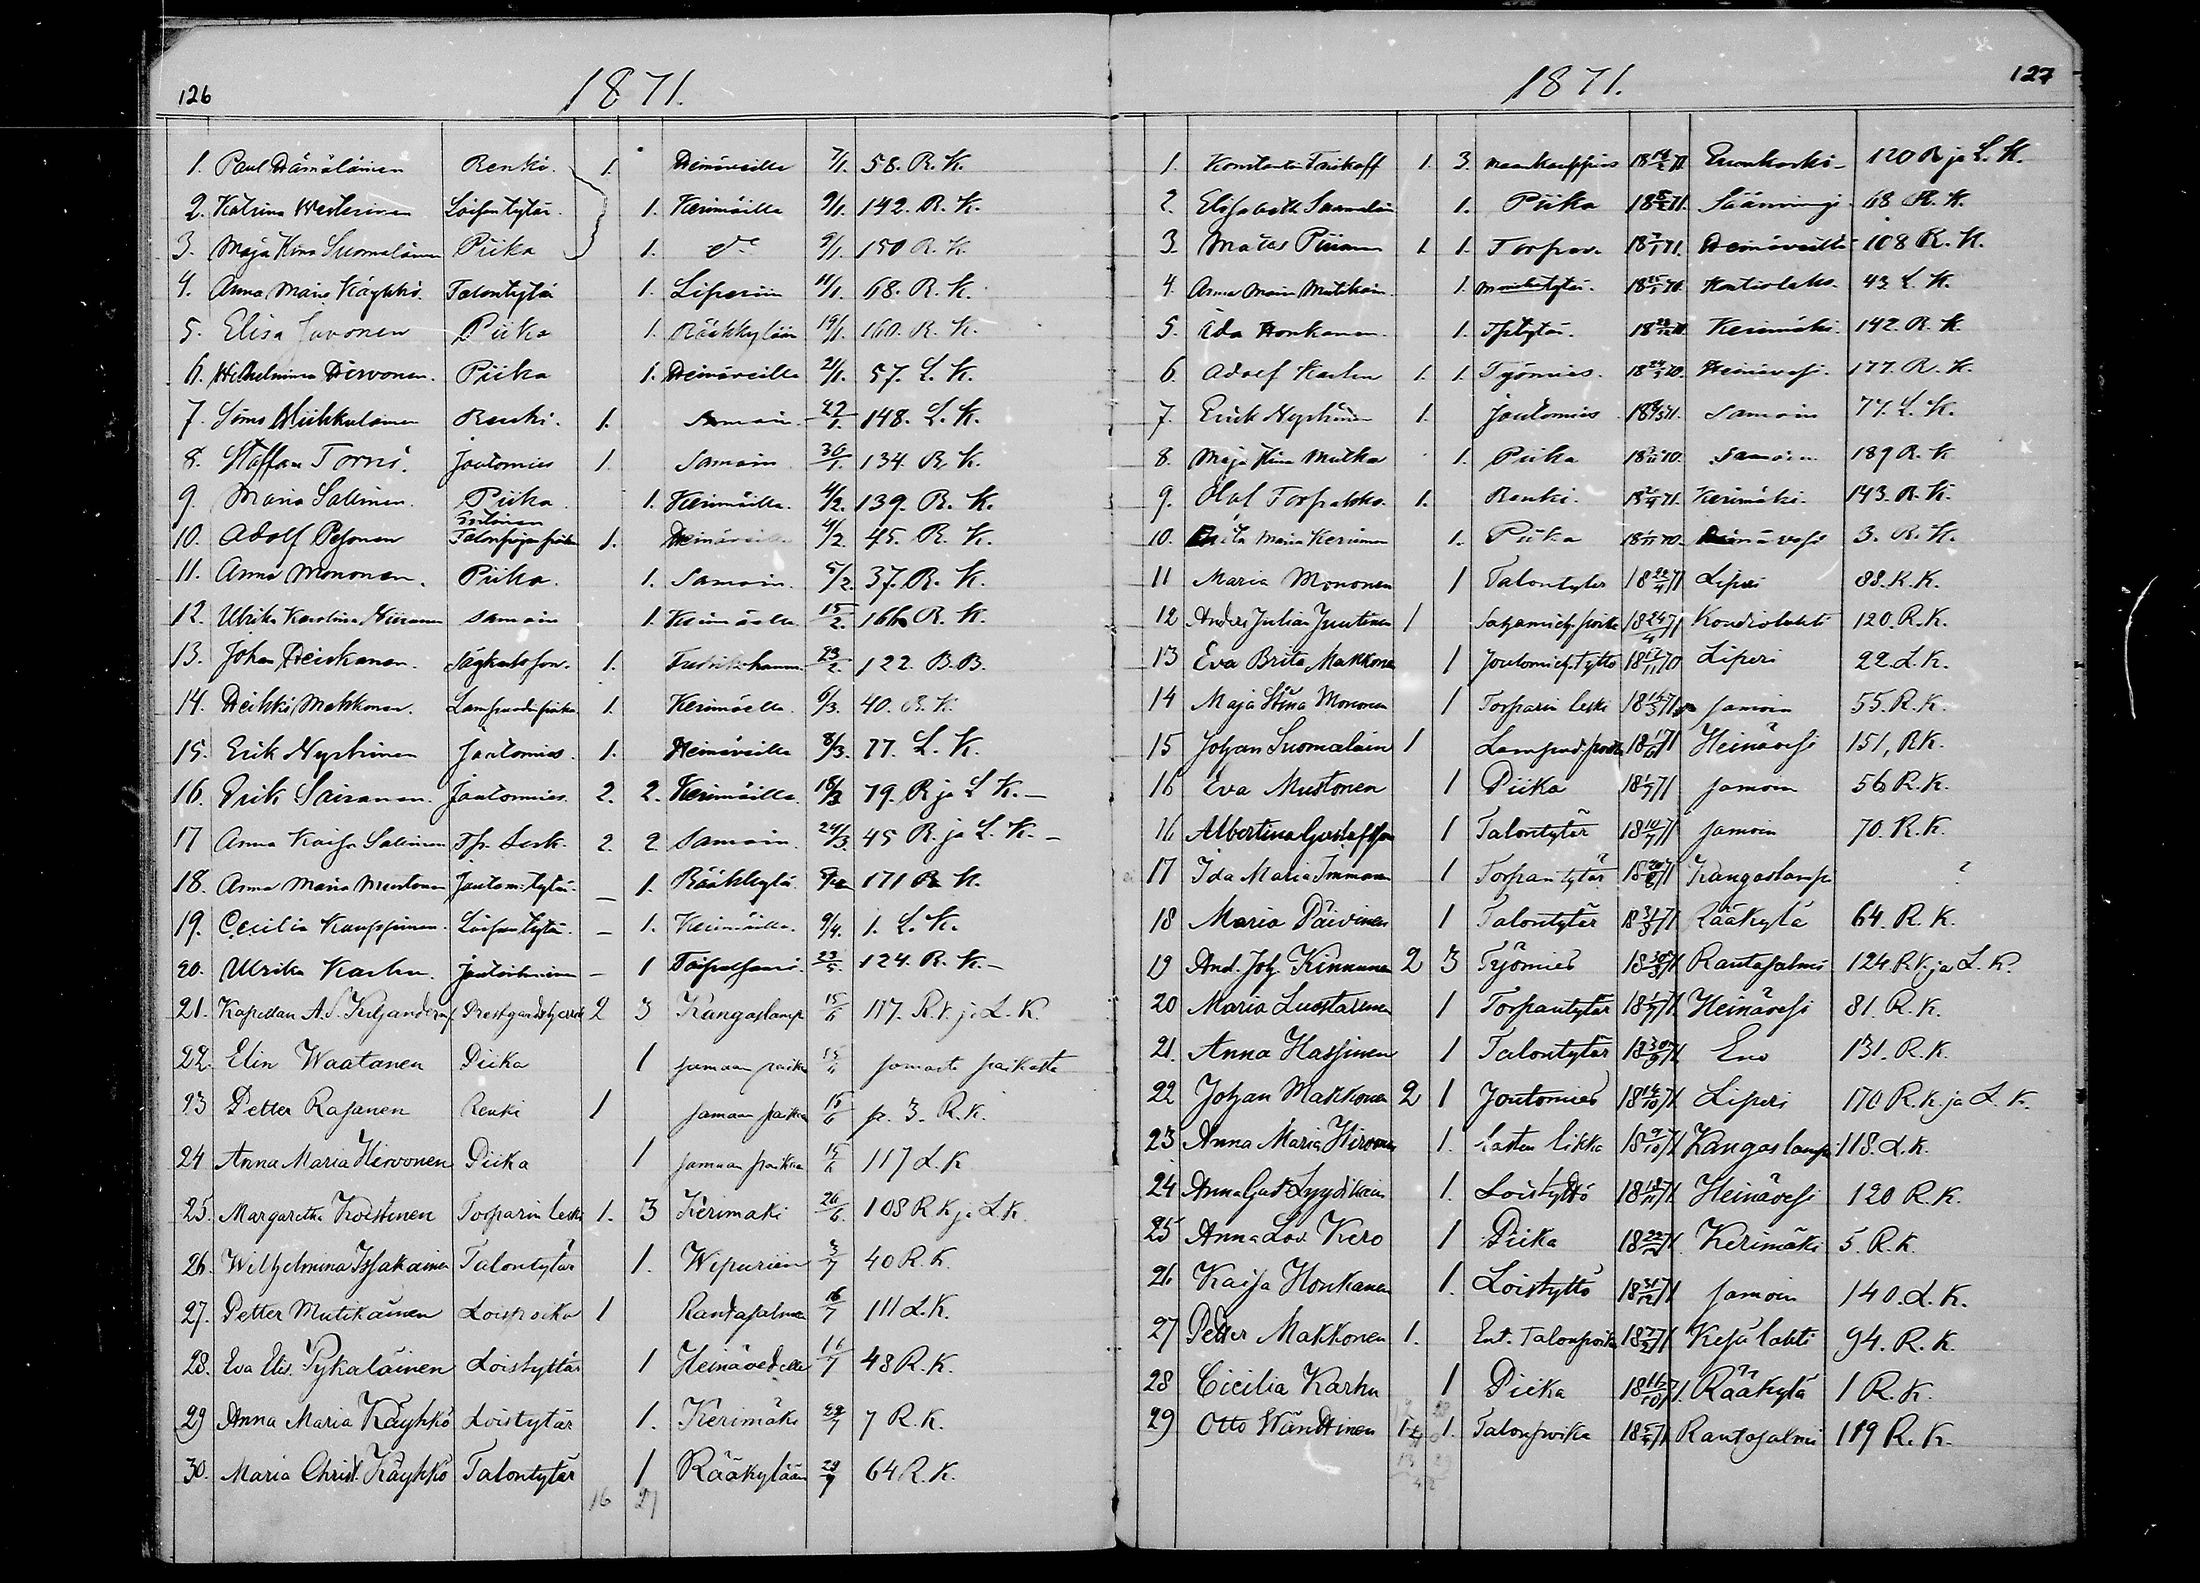 126
1871.
1. Paul Hämäläinen Renki. 1. Heinäveille 7/1. 58. R. K.
2. Katrina Loisentytär. 1. Kerimäille 9/1. 142. R. K.
3. Maja Stina Suomalainen Piika 1. do 9/1. 150 R. K.
4. Anna Maria Käyhkö. Talontytär 1. Liperiin 11/1. 68. R. K.
5. Elisa Javonen Piika 1. Rääkkylään 19/1. 160. R. K.
6. Wilhelmina Hirvonen. Piika 1. Heinäveille 21/1. 57. L. K.
7. Simo Miikkulainen Renki. 1. Samoin. 27/1. 148. L. K.
8. Staffan Torni. Joutomies 1. Samoin 30/1. 134. R. K.
9. Maria Sallinen. Piika. 1. Kerimäille. 4/2. 139. R. K.
10. Adolf Pesonen Entinen Talonpojanpoika 1. Heinäveille 4/2. 45. R. K.
11. Anna Mononen. Piika. 1. Samoin. 5/2. 37. R. K.
12. Ulrika Karolina samoin 1. Kerimäelle 15/2. 166 R. K.
13. Johan Heiskanen. 1. Fredrikshamn 23/2. 122. B. B.
14. Heikki Makkonen. Lampuodinpoika. 1. Kerimäelle. 6/3. 40. R. K.
15. Erik Nyyhtinen Joutomies. 1. Heinäveille 8/3. 77. L. K.
16. Erik Sairanen. Joutomies. 2. 2. Kerimäille. 18/3 79. R ja L K. —
17 Anna Kaisa Sallinen Tp. Lesk. 2. 2. Samoin. 24/3. 45 R. ja L. K. —
18. Anna Maria Mustonen Joutom: tytär. 1. Rääkkylä. 171 R K.
19. Cecilia Kauppinen. Loisentytär. — 1. Kerimäille. 9/4. 1. L. K.
20. Ulrika Karhu. — 1 23/5. 124. R. K. —
21. Kapellan A. S. Kiljander 2 3 Kangaslamp 15/6 117. R. K. ja L. K.
22. Elin Waatanen Piika 1 samaan paikk 15/6 samasta paikasta
23 Petter Rasanen Renki 1 samaan paikka 15/6 p. 3. R. K.
24 Anna Maria Hirvonen Piika 1 samaan paikkaa 15/6 117 L. K
25. Margaretha Koistinen Torparin leski 1. 3 Kerimaki 26/6. 108 R K ja L K.
26. Wilhelmina Issakainen Talontytär 1. Wipuriin 3/7 40 R. K.
27. Petter Mutikainen Loispoika 1 Randasalmen 16/7 111 L. K.
28. Eva Elis. Pykäläinen Loistyttär 1 Heinävedelle 16/7 48 R. K.
29 Anna Maria Käyhkö Loistytär 1. Kerimäki 22/7 7 R. K.
30. Maria Christ. Käyhkö Talontytär 1 Rääkylään 29/7 64 R. K.
16 27
127
1871.
1. Konstantin 1. 3. maankauppias 18 14/2 71. Enonkoski 120 R ja L. K.
2. Elisabeth 1. Piika Sääminge 68 R. K.
3. Matts Piironen 1. 1. Torpar. Heinäveiltä 108 R. K.
4. Anna Maria Mutikain. 1. Kontiolaks. 43. L. K.
5. Ada Honkanen. 1. Kerimäki. 142. R. K.
6. Adolf Karhu 1. 1. Työmies. Heinävesi. 177. R. K.
7. Erik Nyyhtinen 1. Joutomies Samoin 77. L. K.
8. Maja Stina Mutka 1. Piika Samoin 189 R. K
9. Olof Torpakko. 1. Renki. Kerimäki. 143. R. K.
10. Maria Kerinen 1. Piika Heinävesi 3. R. K.
11 Maria Mononen 1 Talontyter 18 22/4 71 Liperi 88. R. K.
12 Anders Julian Juutinen 1 18 24/4 71 Kondiolahti 120. R. K.
13 Eva Brita Makkonen 1 Joutomiehen tyttö Liperi 22. L. K.
14 Maja Stina Mononen 1 Torparin leski samoin 55. R. K.
15 Johan Suomalain 1 Lampuod. poika Heinävesi 151, RK.
16 Eva Mustonen 1 Piika samoin 56 R. K.
16 Albertina Gustafsson 1 Talontytär 18 10/7 71 samoin 70. R. K.
17 Ida Maria Immonen 1 Torpantytär Kangaslampi ?
18 Maria Päivinen 1 Talontytär Rääkylä 64. R. K.
19 And. Joh. Kinnunen 2 3 Työmies Rantasalmi 124. R. K. ja L. K.
20 Maria Luostarinen 1 Torpantytär Heinävesi 81. R. K.
21. Anna Hassinen 1 Talontytär 18 30/9 71 Eno 131. R. K.
22 Johan Makkonen 2 1 Joutomies 18 14/10 71 Liperi 170 R. K. ja L. K.
23 Anna Maria Hirvonen 1. Lasten likka 18 9/10 71 Kangaslampi 118. L. K.
24 Anna Gust. Lyydikäin 1. Loistyttö Heinävesi 120 R. K.
25 Anna Lov. Kero 1 Piika Kerimäki 5. R. K.
26 Kaisa Honkanen 1. Loistyttö 18 31/12 71 samoin 140. L. K.
27 Petter Makkonen 1. Ent. Talonpoika Kesälahti 94. R. K.
28 Cicilia Karhu 1 Piika 18 16/10 71. Rääkylä 1 R. K.
29 Otto Wänttinen 1. 1. Talonpoika Rantasalmi 119 R. K.